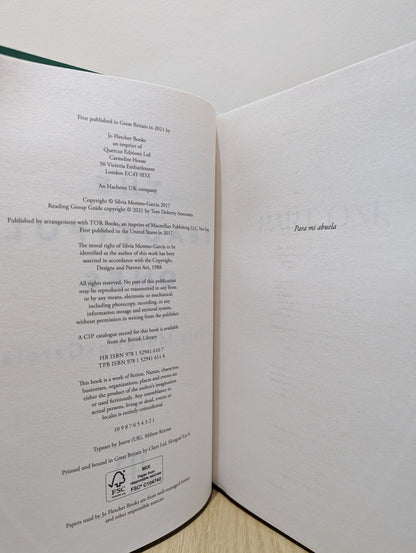 First published in Great Britain in 2021 by
Jo Fletcher Books
an imprint of
Quercus Editions Ltd
Carmelite House
50 Victoria Embankment
London EC4Y 0DZ
An Hachette UK company
Copyright © Silvia Moreno-Garcia 2017
Reading Group Guide copyright © 2021 by Tom Doherty Associates
Published by arrangement with TOR Books, an imprint of Macmillan Publishing LLC, New York.
First published in the United States in 2017.
The moral right of Silvia Moreno-Garcia to be
identified as the author of this work has been
asserted in accordance with the Copyright,
Designs and Patents Act, 1988.
All rights reserved. No part of this publication
may be reproduced or transmitted in any form
or by any means, electronic or mechanical,
including photocopy, recording, or any
information storage and retrieval system,
without permission in writing from the publisher.
A CIP catalogue record for this book is available
from the British Library
HB ISBN 978 1 52941 610 7
TPB ISBN 978 1 52941 611 4
This book is a work of fiction. Names, characters,
businesses, organizations, places and events are
either the product of the author's imagination
or used fictitiously. Any resemblance to
actual persons, living or dead, events or
locales is entirely coincidental.
10 9 8 7 6 5 4 3 2 1
Typeset by Jouve (UK), Milton Keynes
Printed and bound in Great Britain by Clays Ltd, Elcograf S.p.A.
FSC
MIX
Paper from
responsible sources
FSC® C104740
Papers used by Jo Fletcher Books are from well-managed forests
and other responsible sources.
Para mi abuela